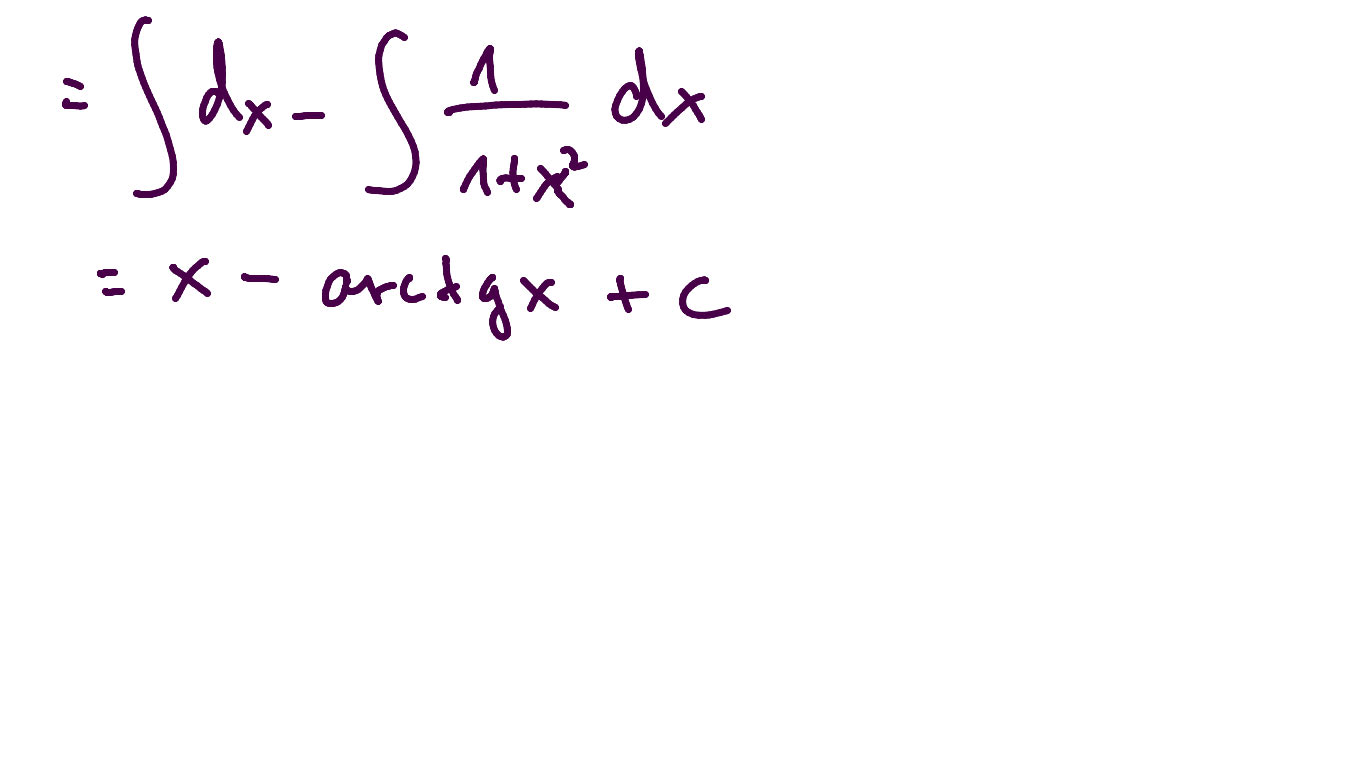 = ∫ dx - ∫ 1/(1+x²) dx
= x - arctgx + c